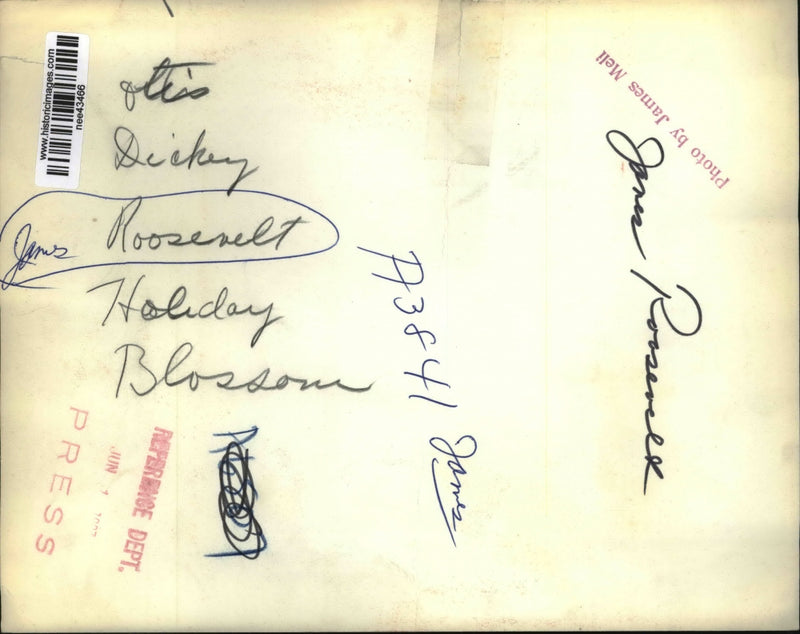 www.historicimages.com
nee43466
Otis
Dickey
James Roosevelt
Holiday
Blossom
A3841 James
James Roosevelt
Photo by James Meli
REFERENCE DEPT.
JUN 1
PRESS